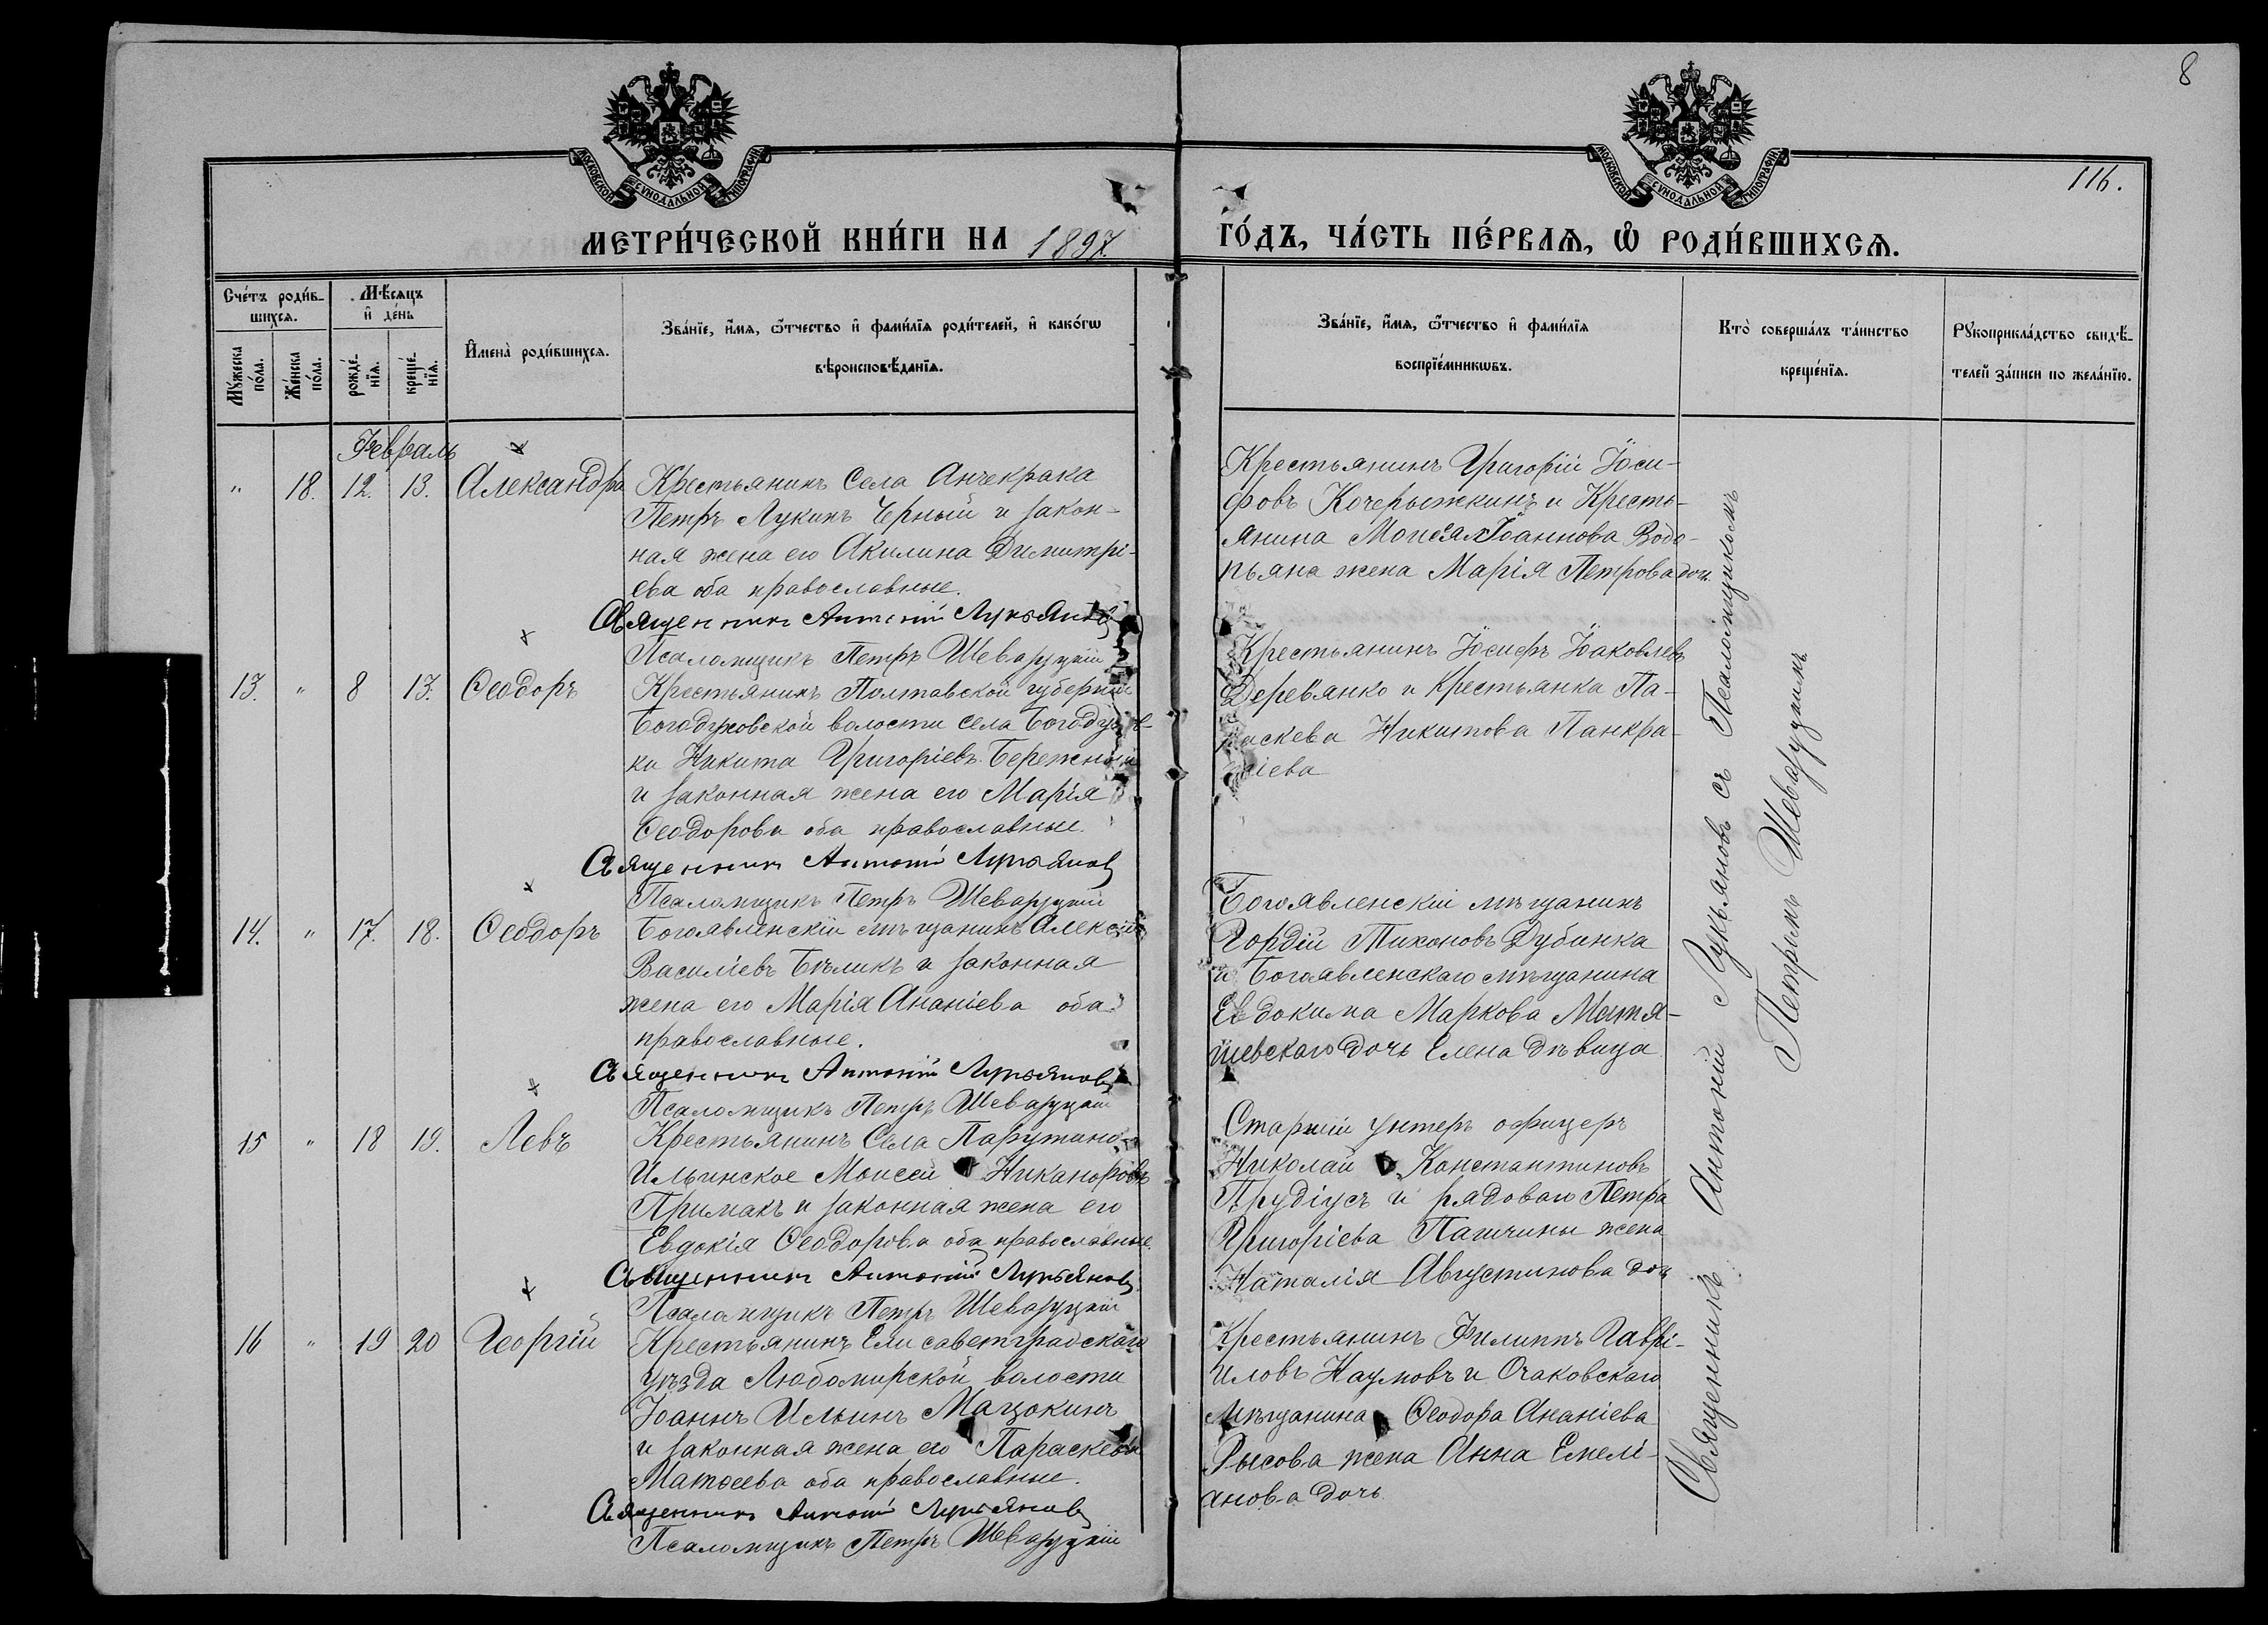 8
116.
МОСКОВСКОЙ СУНОДАЛЬНОЙ ТИПОГРАФІИ
МОСКОВСКОЙ СУНОДАЛЬНОЙ ТИПОГРАФІИ
МЕТРИ́ЧЕСКОЙ КНИ́ГИ НА 1897 ГО́ДЪ, ЧА́СТЬ ПЕ́РВАѦ, Ѡ҆ РОДИ́ВШИХСѦ.
Сче́тъ роди́в-
шихсѧ.
Мꙋ́жеска по́ла.
Же́нска по́ла.
Мѣ́сѧцъ и҆ де́нь
рожде́-
нїѧ.
креще́-
нїѧ.
И҆мена̀ роди́вшихсѧ.
Зва́нїе, и҆́мѧ, ѻ҆́тчество и҆ фами́лїѧ роди́телей, и҆ како́гѡ
вѣроисповѣ́данїѧ.
Зва́нїе, и҆́мѧ, ѻ҆́тчество и҆ фами́лїѧ
воспрїе́мникѡвъ.
Кто̀ соверша́лъ та́инство
креще́нїѧ.
Рꙋкоприкла́дство свидѣ́-
телей за́писи по жела́нїю.
Февраль
" 18. 12. 13. Александра
Крестьянинъ Села Анчекрака
Петръ Лукинъ Черный и закон-
ная жена его Акилина Димитрі-
ева оба православные.
Священникъ Антоній Лукьяновъ
Псаломщикъ Петръ Шеваруцкій
Крестьянинъ Григорій Іоси-
фовъ Кочерыжкинъ и Кресть-
янина Моисея Іоаннова Водо-
пьяна жена Марія Петрова доч.
13. " 8 13. Ѳеодоръ
Крестьянинъ Полтавской губерніи
Богодуховской волости села Богодухов-
ки Никита Григоріевъ Бережный
и законная жена его Марія
Ѳеодорова оба православные.
Священникъ Антоній Лукьяновъ
Псаломщикъ Петръ Шеваруцкій
Крестьянинъ Іосифъ Іаковлевъ
Деревянко и Крестьянка Па-
раскева Никитова Панкра-
тіева
14. " 17. 18. Ѳеодоръ
Богоявленскій мѣщанинъ Алексій
Василіевъ Бѣликъ и законная
жена его Марія Ананіева оба
православные.
Священникъ Антоній Лукьяновъ
Псаломщикъ Петръ Шеваруцкій
Богоявленскій мѣщанинъ
Гордій Тихоновъ Дубинка
и Богоявленскаго мѣщанина
Евдокима Маркова Матя-
шевскаго дочь Елена дѣвица
15 " 18 19. Левъ
Крестьянинъ Села Парутино-
Ильинское Моисей Никаноровъ
Примакъ и законная жена его
Евдокія Ѳеодорова оба православные.
Священникъ Антоній Лукьяновъ
Псаломщикъ Петръ Шеваруцкій
Старшій унтеръ офицеръ
Николай Константиновъ
Прудіусъ и рядоваго Петра
Григоріева Пашчины жена
Наталія Августинова доч
16 " 19 20 Георгій
Крестьянинъ Елисаветградскаго
уѣзда Любомирской волости
Іоаннъ Ильинъ Мацокинъ
и законная жена его Параскева
Матѳеева оба православные.
Священникъ Антоній Лукьяновъ
Псаломщикъ Петръ Шеваруцкій
Крестьянинъ Филиппъ Гаврі-
иловъ Наумовъ и Очаковскаго
Мѣщанина Ѳеодора Ананіева
Рысова жена Анна Емелі-
анова дочь
Священникъ Антоній Лукьяновъ съ Псаломщикомъ
Петромъ Шеваруцкимъ